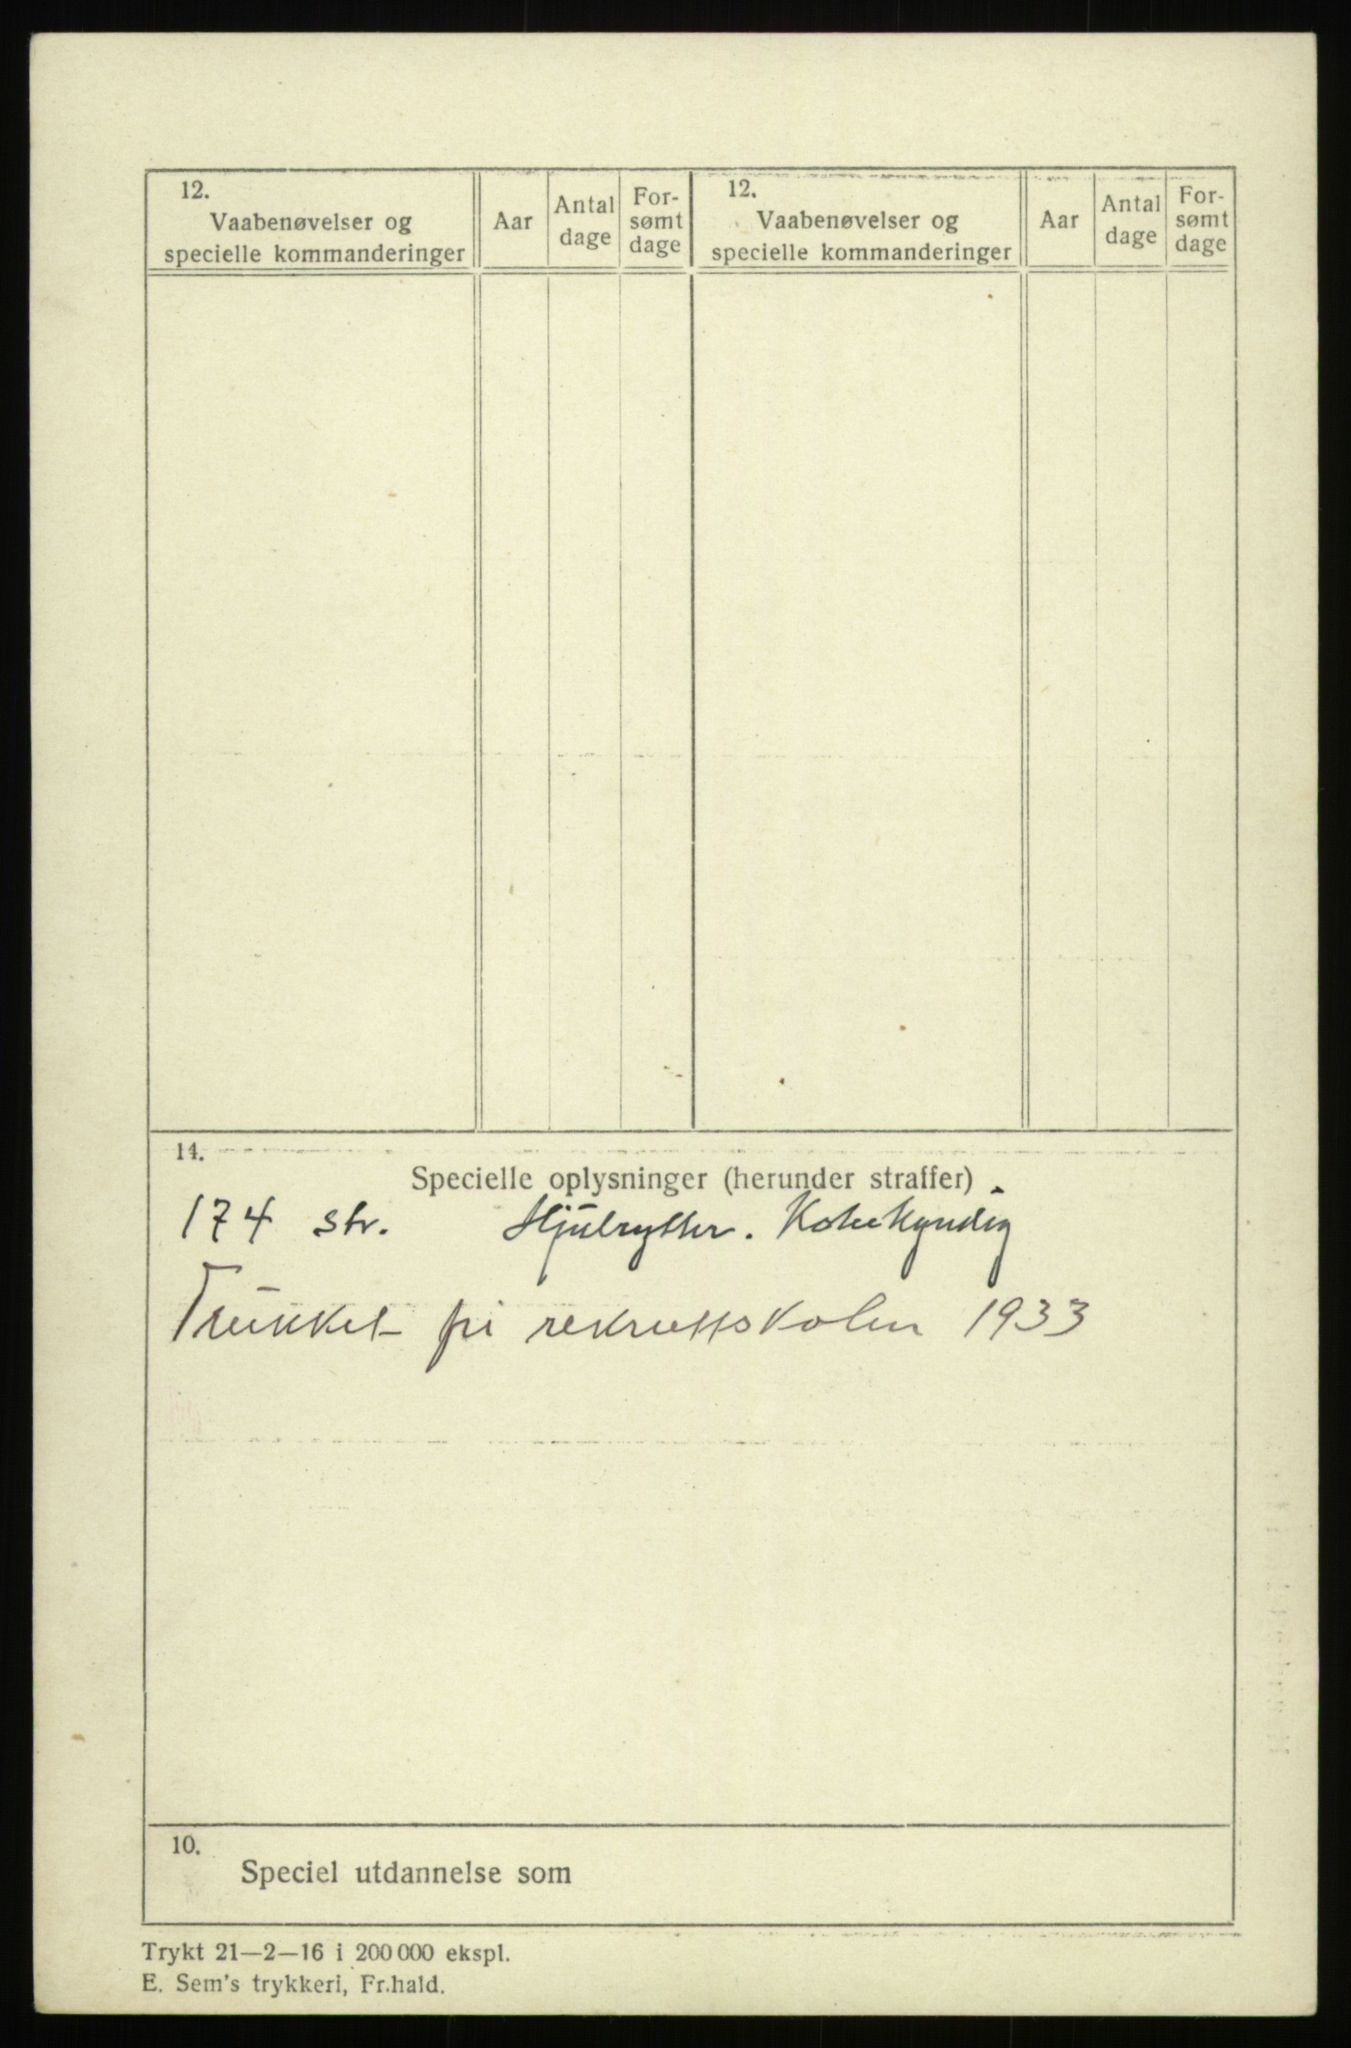 12.
Vaabenøvelser og
specielle kommanderinger
Aar
Antal
dage
For-
sømt
dage
12.
Vaabenøvelser og
specielle kommanderinger
Aar
Antal
dage
For-
sømt
dage
14.
Specielle oplysninger (herunder straffer)
174 str. Hjulrytter. Kokekyndig
Trukket fri rekruttskolen 1933
10.
Speciel utdannelse som
Trykt 21—2—16 i 200 000 ekspl.
E. Sem's trykkeri, Fr.hald.